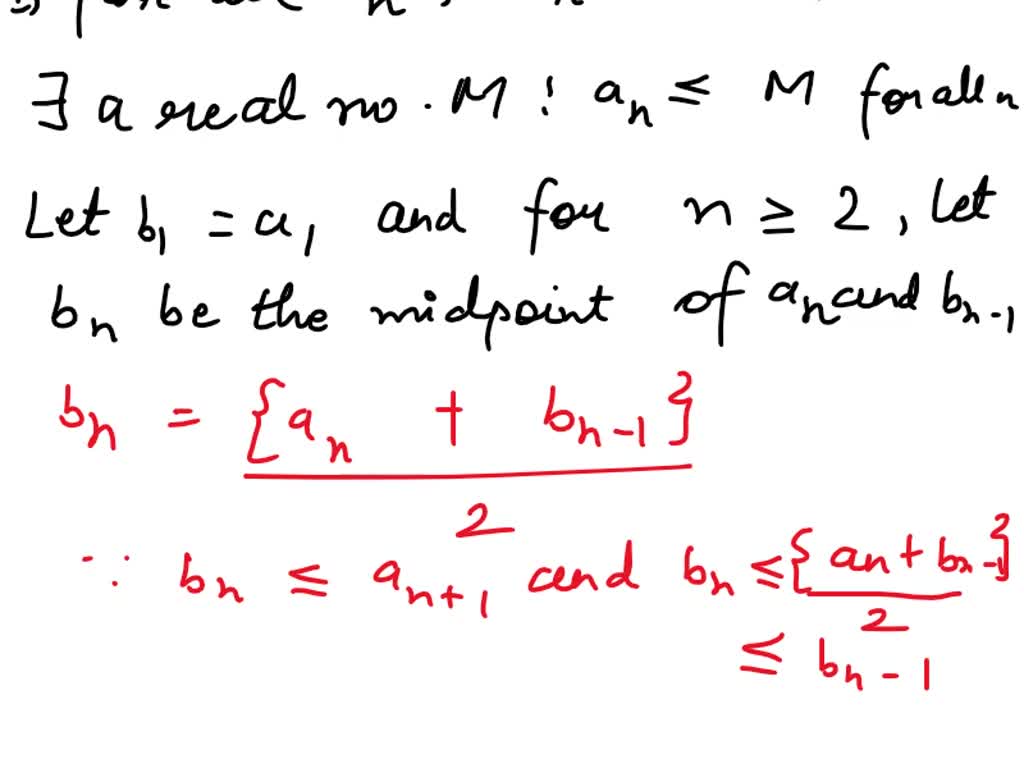 ∃ a real no. M : aₙ ≤ M for all n
Let b₁ = a₁ and for n ≥ 2, let
bₙ be the midpoint of aₙ and bₙ₋₁
bₙ = {aₙ + bₙ₋₁}
2
∵ bₙ ≤ aₙ₊₁ and bₙ ≤ {an + bₙ₋₁}
2
≤ bₙ₋₁